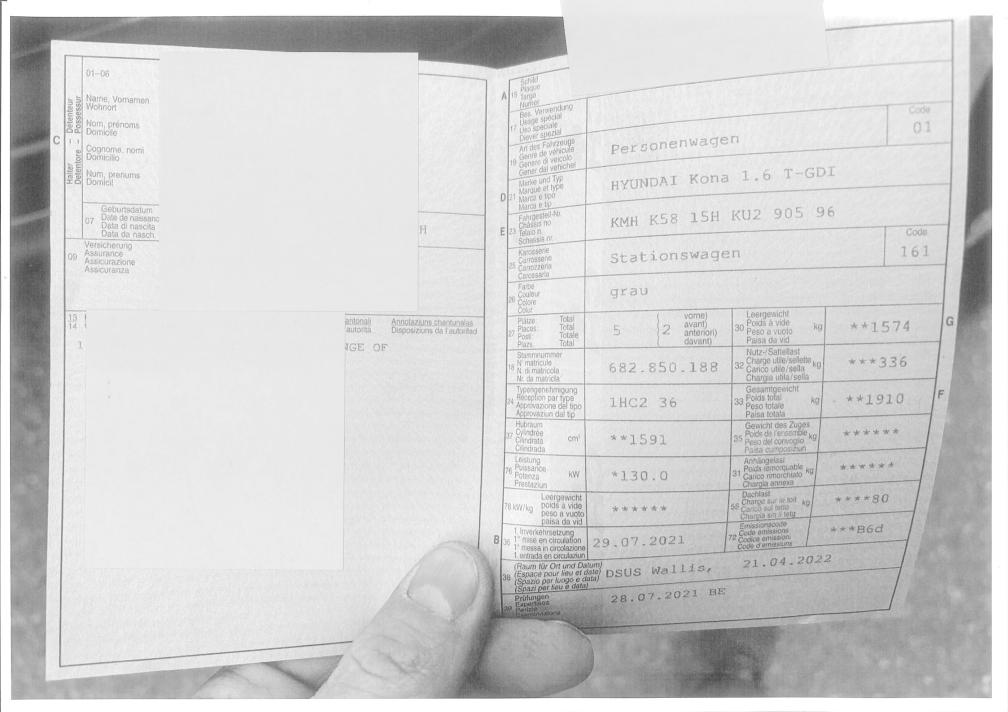 01–06
Detenteur
Possesseur
Halter
Detentore
C
Name, Vornamen
Wohnort
Nom, prénoms
Domicile
Cognome, nomi
Domicilio
Num, prenums
Domicil
07
Geburtsdatum
Date de naissanc
Data di nascita
Data da nasch.
H
09
Versicherung
Assurance
Assicurazione
Assicuranza
13
14
antonali
autorità
Annotaziuns chantunalas
Disposiziuns da l'autoritad
1
NGE OF
A
15
Schild
Plaque
Targa
Numer
17
Bes. Verwendung
Usage spécial
Uso speciale
Diever spezial
19
Art des Fahrzeugs
Genre de véhicule
Genere di veicolo
Gener dal vehichel
Personenwagen
Code
01
D
21
Marke und Typ
Marque et type
Marca e tipo
Marca e tip
HYUNDAI Kona 1.6 T-GDI
E
23
Fahrgestell-Nr.
Châssis no
Telaio n.
Schassis nr.
KMH K58 15H KU2 905 96
25
Karosserie
Carrosserie
Carrozzeria
Carossaria
Stationswagen
Code
161
26
Farbe
Couleur
Colore
Colur
grau
27
Plätze: Total
Places: Total
Posti: Totale
Plazs: Total
5
2
vorne)
avant)
anteriori)
davant)
30
Leergewicht
Poids à vide
Peso a vuoto
Paisa da vid
kg
**1574
G
18
Stammnummer
N° matricule
N. di matricola
Nr. da matricla
682.850.188
32
Nutz-/Sattellast
Charge utile/sellette
Carico utile/sella
Chargia utila/sella
kg
***336
24
Typengenehmigung
Réception par type
Approvazione del tipo
Approvaziun dal tip
1HC2 36
33
Gesamtgewicht
Poids total
Peso totale
Paisa totala
kg
**1910
F
37
Hubraum
Cylindrée
Cilindrata
Cilindrada
cm³
**1591
35
Gewicht des Zuges
Poids de l'ensemble
Peso del convoglio
Paisa cumposiziun
kg
******
76
Leistung
Puissance
Potenza
Prestaziun
kW
*130.0
31
Anhängelast
Poids remorquable
Carico rimorchiato
Chargia annexa
kg
******
78
kW/kg
Leergewicht
poids à vide
peso a vuoto
paisa da vid
******
55
Dachlast
Charge sur le toit
Carico sul tetto
Chargia sin il tetg
kg
****80
B
36
1. Inverkehrsetzung
1re mise en circulation
1a messa in circolazione
1. entrada en circulaziun
29.07.2021
72
Emissionscode
Code émissions
Codice emissioni
Code d'emissiuns
***B6d
38
(Raum für Ort und Datum)
(Espace pour lieu et date)
(Spazio per luogo e data)
(Spazi per lieu e data)
DSUS Wallis, 21.04.2022
39
Prüfungen
Expertises
Perizie
28.07.2021 BE